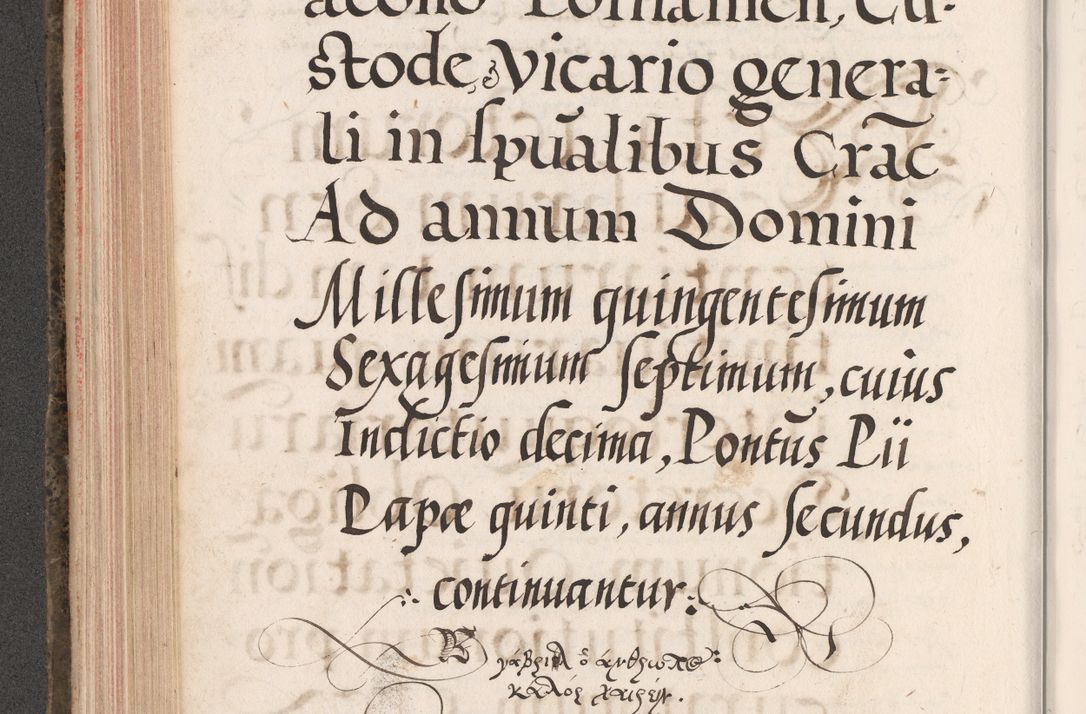 acono Lornamen, Cu-
stode, Vicario genera-
li in spūalibus Crāc
Ad annum Domini
Millesimum quingentesimum
Sexagesimum septimum, cuius
Indictio decima, Pontūs Pii
Papæ quinti, annus secundus,
continuantur:
ὁ ἄνθρωπε
καλὸς χαίρειν.